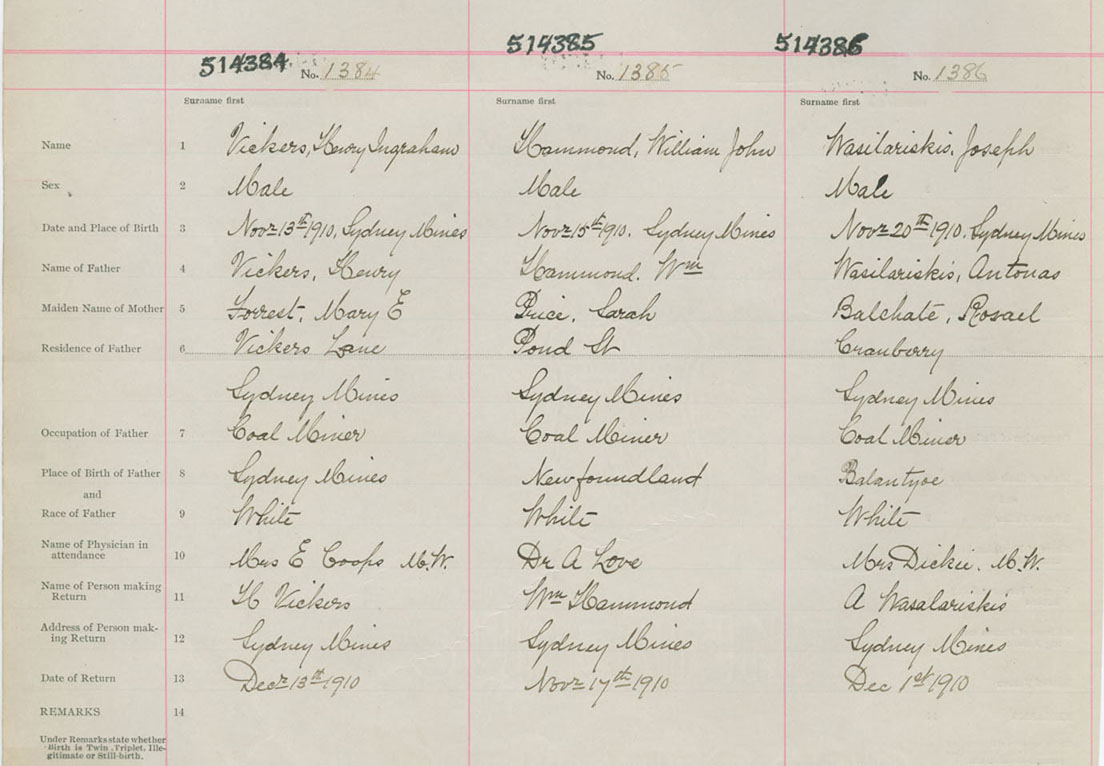 514384 No. 1384
514385 No. 1385
514386 No. 1386
Surname first Surname first Surname first
Name 1 Vickers, Henry Ingraham Hammond, William John Wasilariskis, Joseph
Sex 2 Male Male Male
Date and Place of Birth 3 Novr 13th 1910, Sydney Mines Novr 15th 1910. Sydney Mines Novr 20th 1910. Sydney Mines
Name of Father 4 Vickers, Henry Hammond. Wm Wasilariskis, Antonas
Maiden Name of Mother 5 Forrest, Mary E Price, Sarah Balchate, Rosael
Residence of Father 6 Vickers Lane Pond St Cranberry
Sydney Mines Sydney Mines Sydney Mines
Occupation of Father 7 Coal Miner Coal Miner Coal Miner
Place of Birth of Father 8 Sydney Mines Newfoundland
and
Race of Father 9 White White White
Name of Physician in
attendance 10 Mrs E Coops M.W. Dr A Love Mrs Dickie. M.W.
Name of Person making
Return 11 H Vickers Wm Hammond A Wasalariskis
Address of Person mak-
ing Return 12 Sydney Mines Sydney Mines Sydney Mines
Date of Return 13 Decr 13th 1910 Novr 17th 1910 Dec 1st 1910
REMARKS 14
Under Remarks state whether
Birth is Twin, Triplet, Ille-
gitimate or Still-birth.